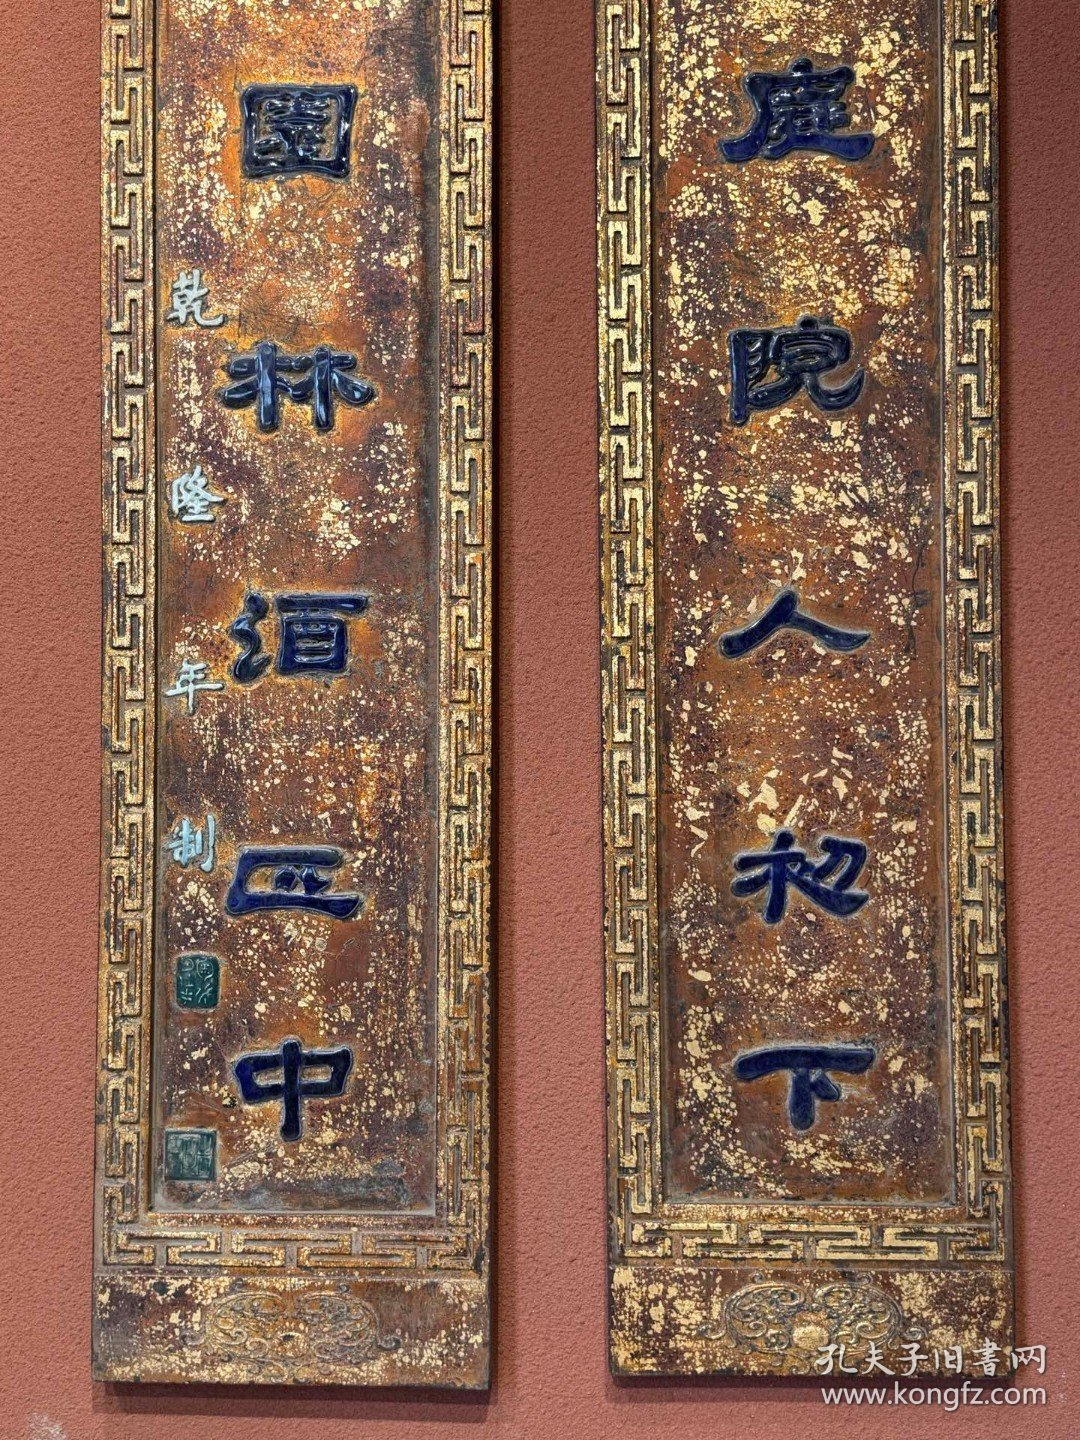 庭院人初下
園林酒正中
乾隆年制
孔夫子旧書网
www.kongfz.com